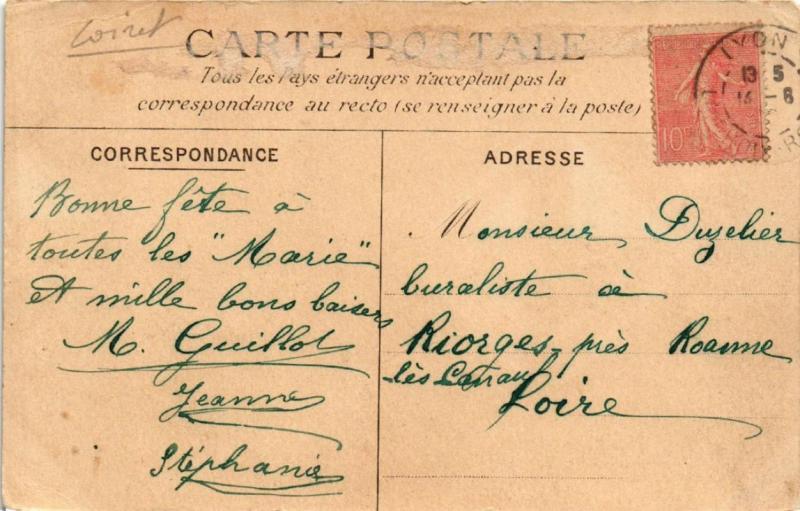 Loiret
CARTE POSTALE
Tous les Pays étrangers n'acceptant pas la
correspondance au recto (se renseigner à la poste)
LYON
13 5
10
CORRESPONDANCE
Bonne fête à
toutes les "Marie"
et mille bons baisers
M. Guillot
Jeanne
Stéphanie
ADRESSE
Monsieur Duzelier
buraliste à
Riorges près Roanne
lès Canaux
Loire